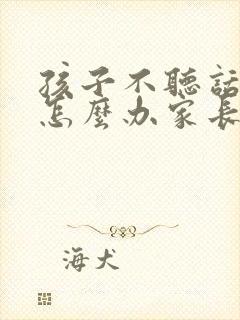 孩子不聽話
怎麼办家長
海犬